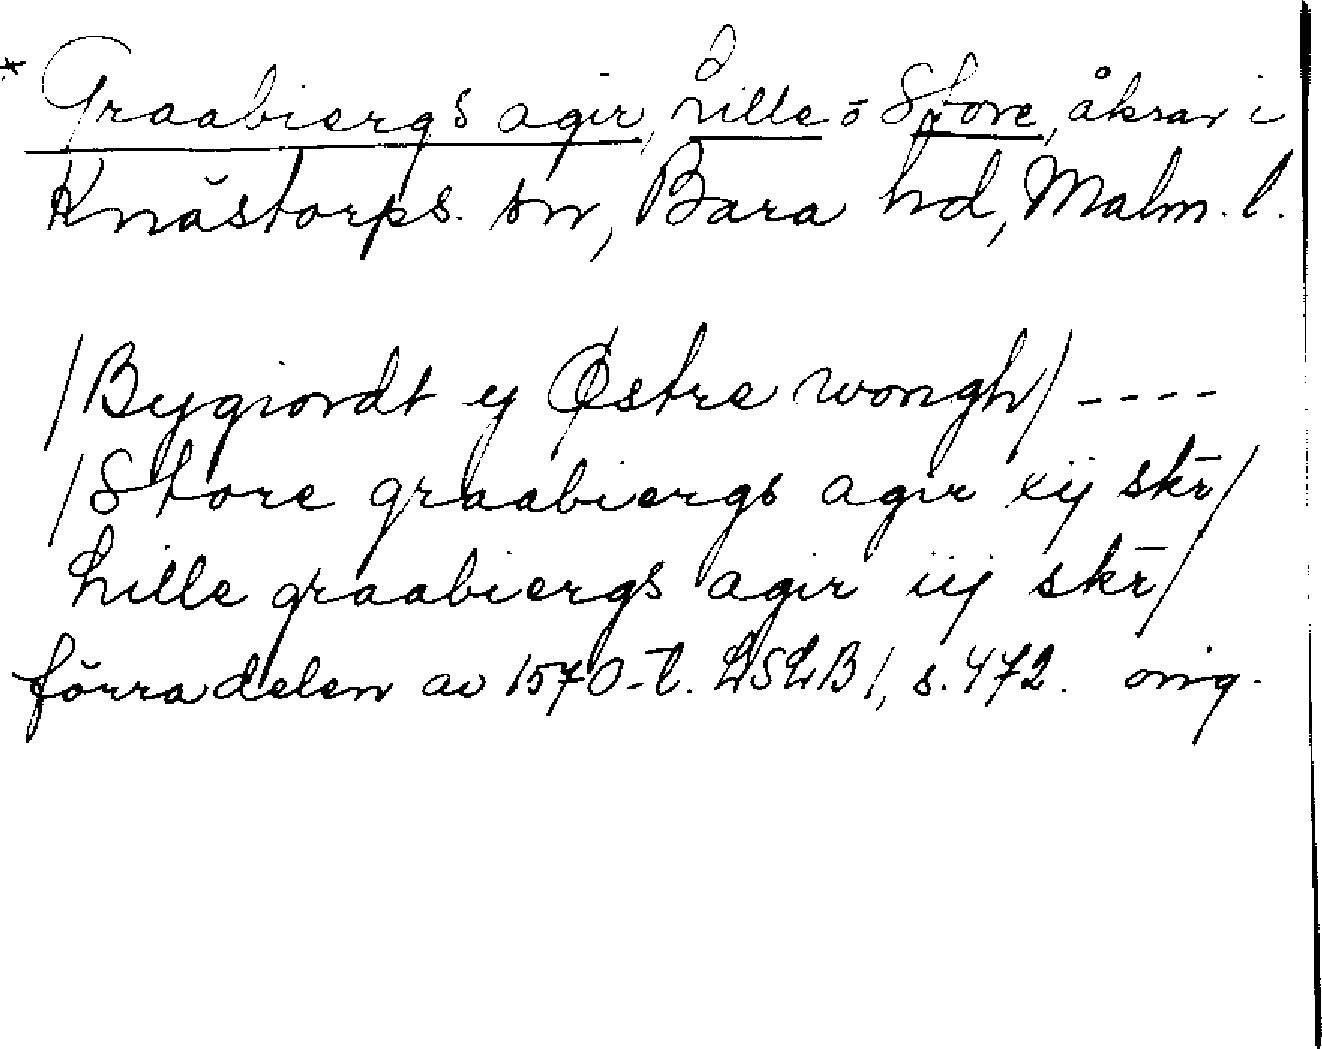 * Graabiergs agir, Lille o Store, åkrar i
Knästorps sn, Bara hd, Malm. l.
/Bygiordt y Østre wongh/ ----
/Store graabiergs agir xij skr/
Lille graabiergs agir iij skr/
förra delen av 1570-t. LSLB I, s. 472. orig.